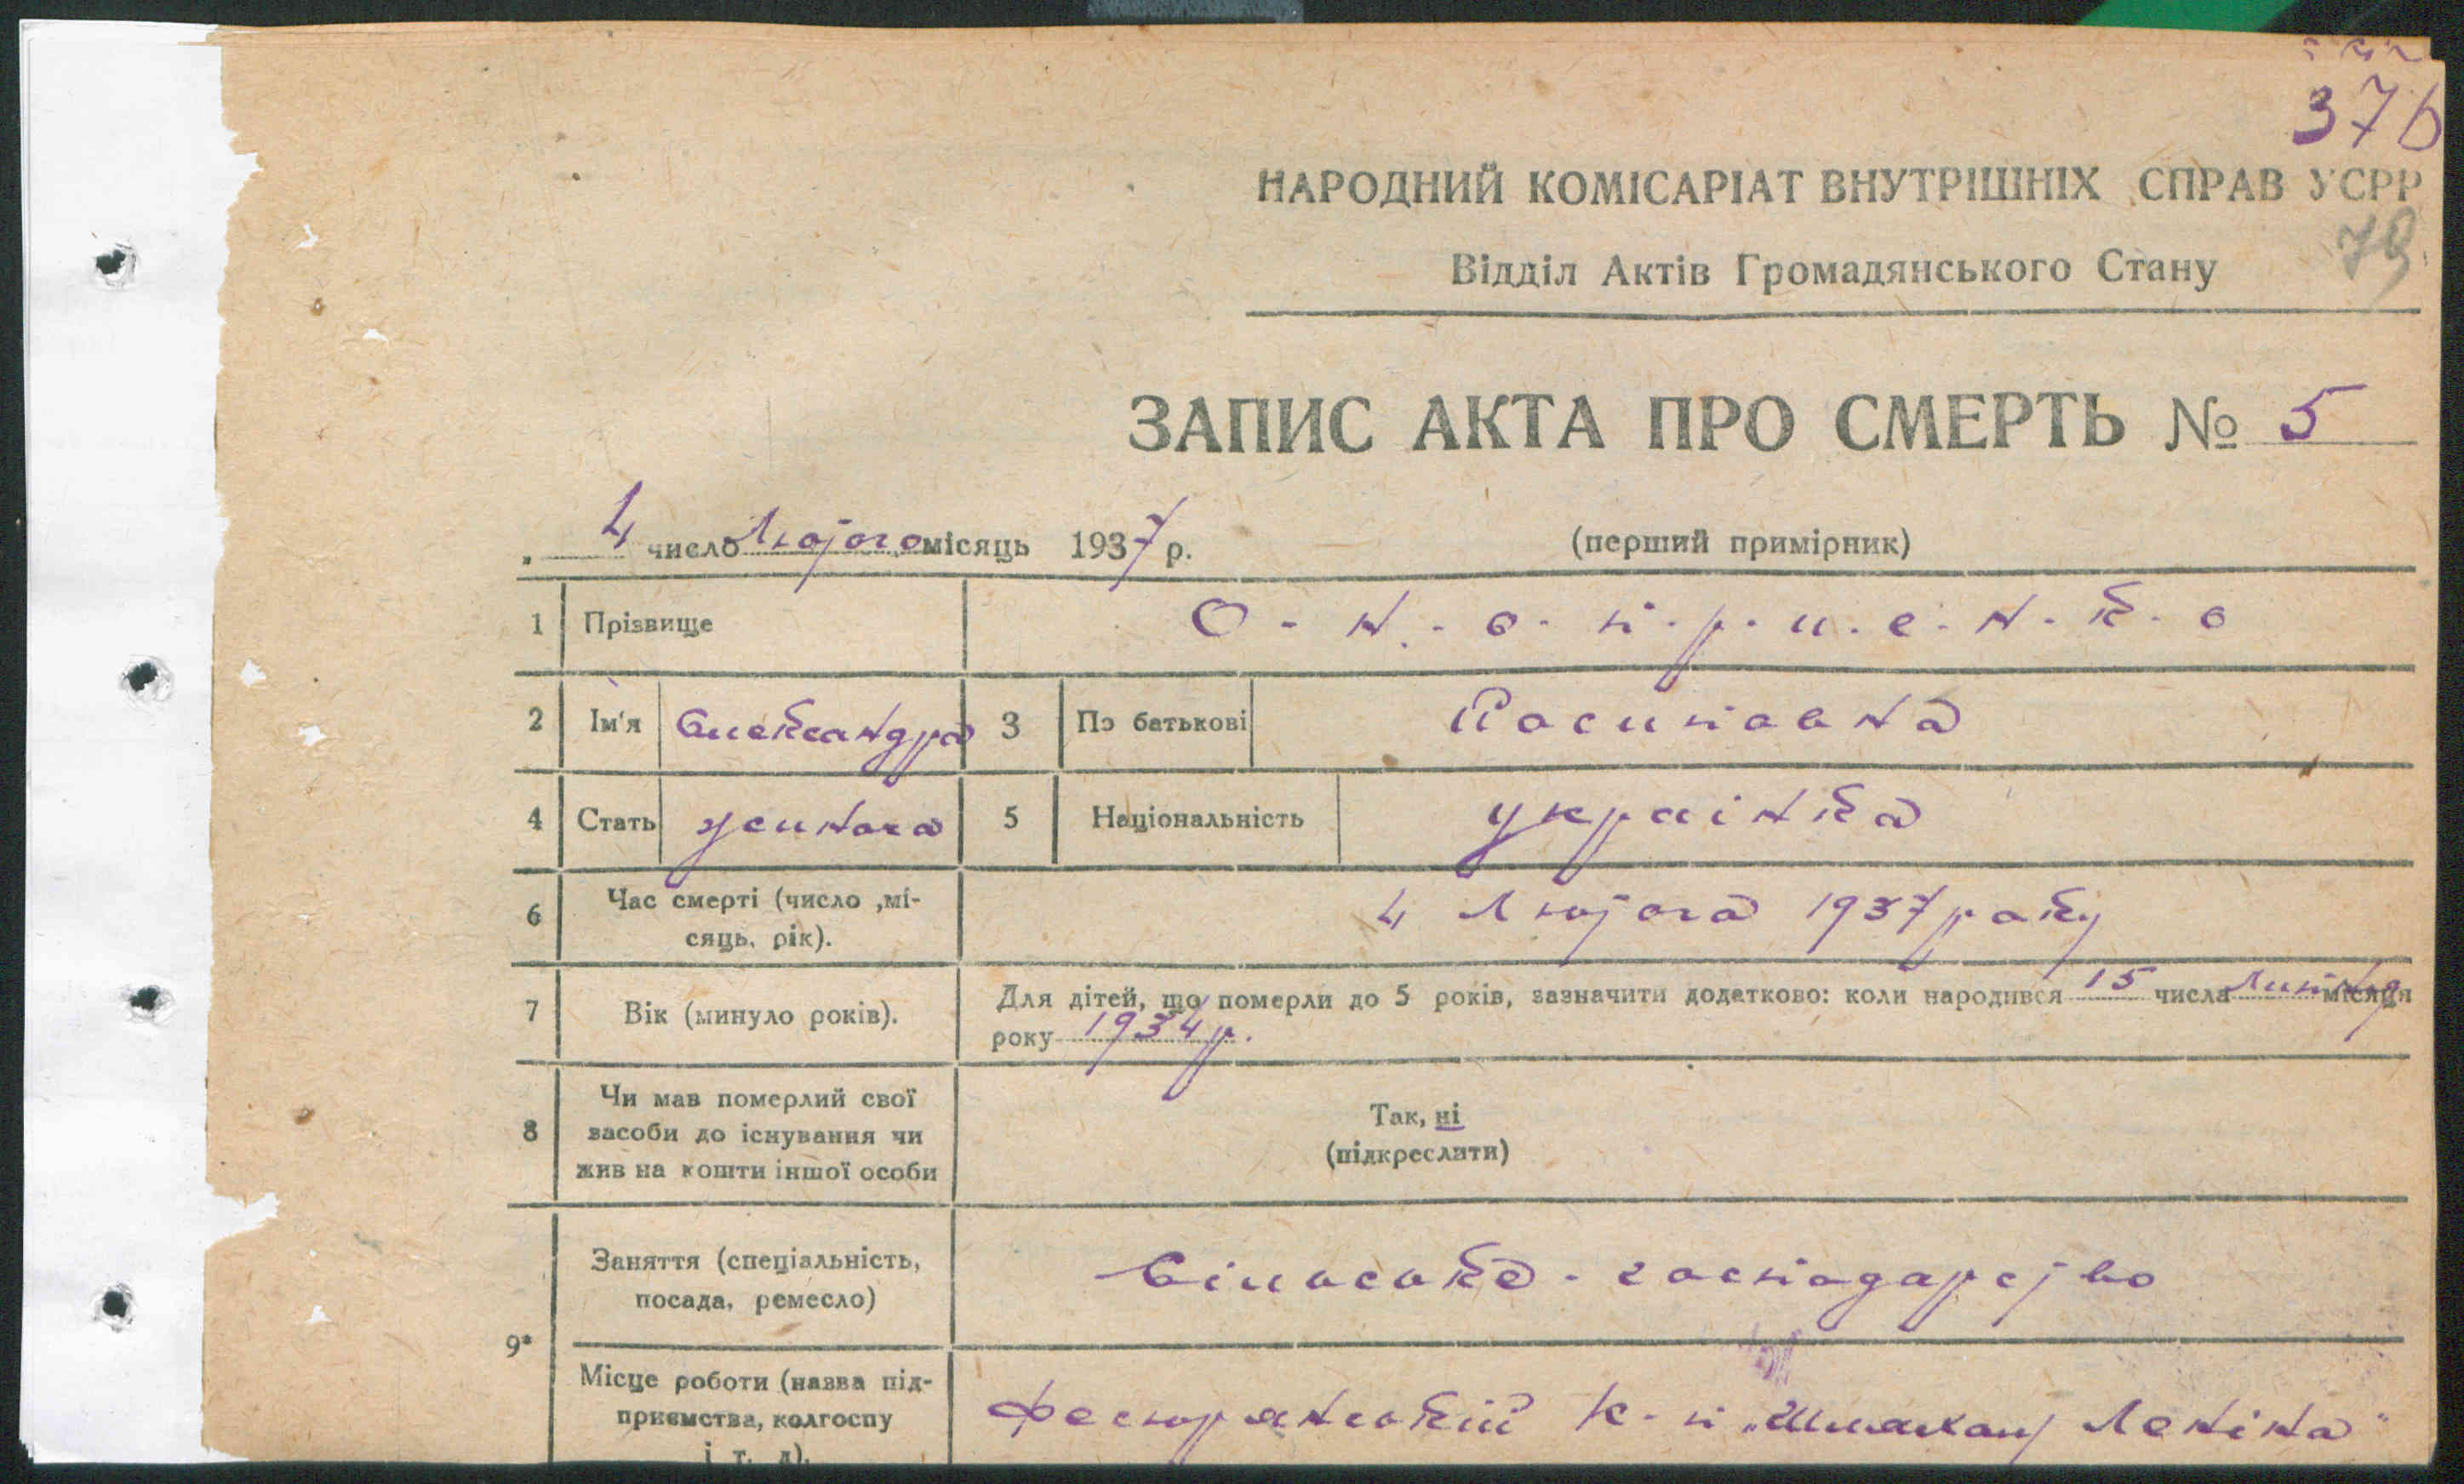 376
НАРОДНИЙ КОМІСАРІАТ ВНУТРІШНІХ СПРАВ УСРР
79
Відділ Актів Громадянського Стану
ЗАПИС АКТА ПРО СМЕРТЬ № 5
4 число Лютого місяць 1937 р. (перший примірник)
1 Прізвище О-н-о-п-р-и-е-н-к-о
2 Ім'я Олександра 3 По батькові Йосиповна
4 Стать жиноча 5 Національність українка
6 Час смерті (число ,мі-
сяць, рік). 4 Лютого 1937 року
7 Вік (минуло років). Для дітей, що померли до 5 років, зазначити додатково: коли народився 15 числа Липня місяця
року 1934 р.
8 Чи мав померлий свої
засоби до існування чи
жив на кошти іншої особи
Так, ні
(підкреслити)
9*
Заняття (спеціальність,
посада, ремесло)
Сільсько-господарство
Місце роботи (назва під-
приємства, колгоспу
і т. д).
Фесюрянський К-п „Шляхом Леніна"